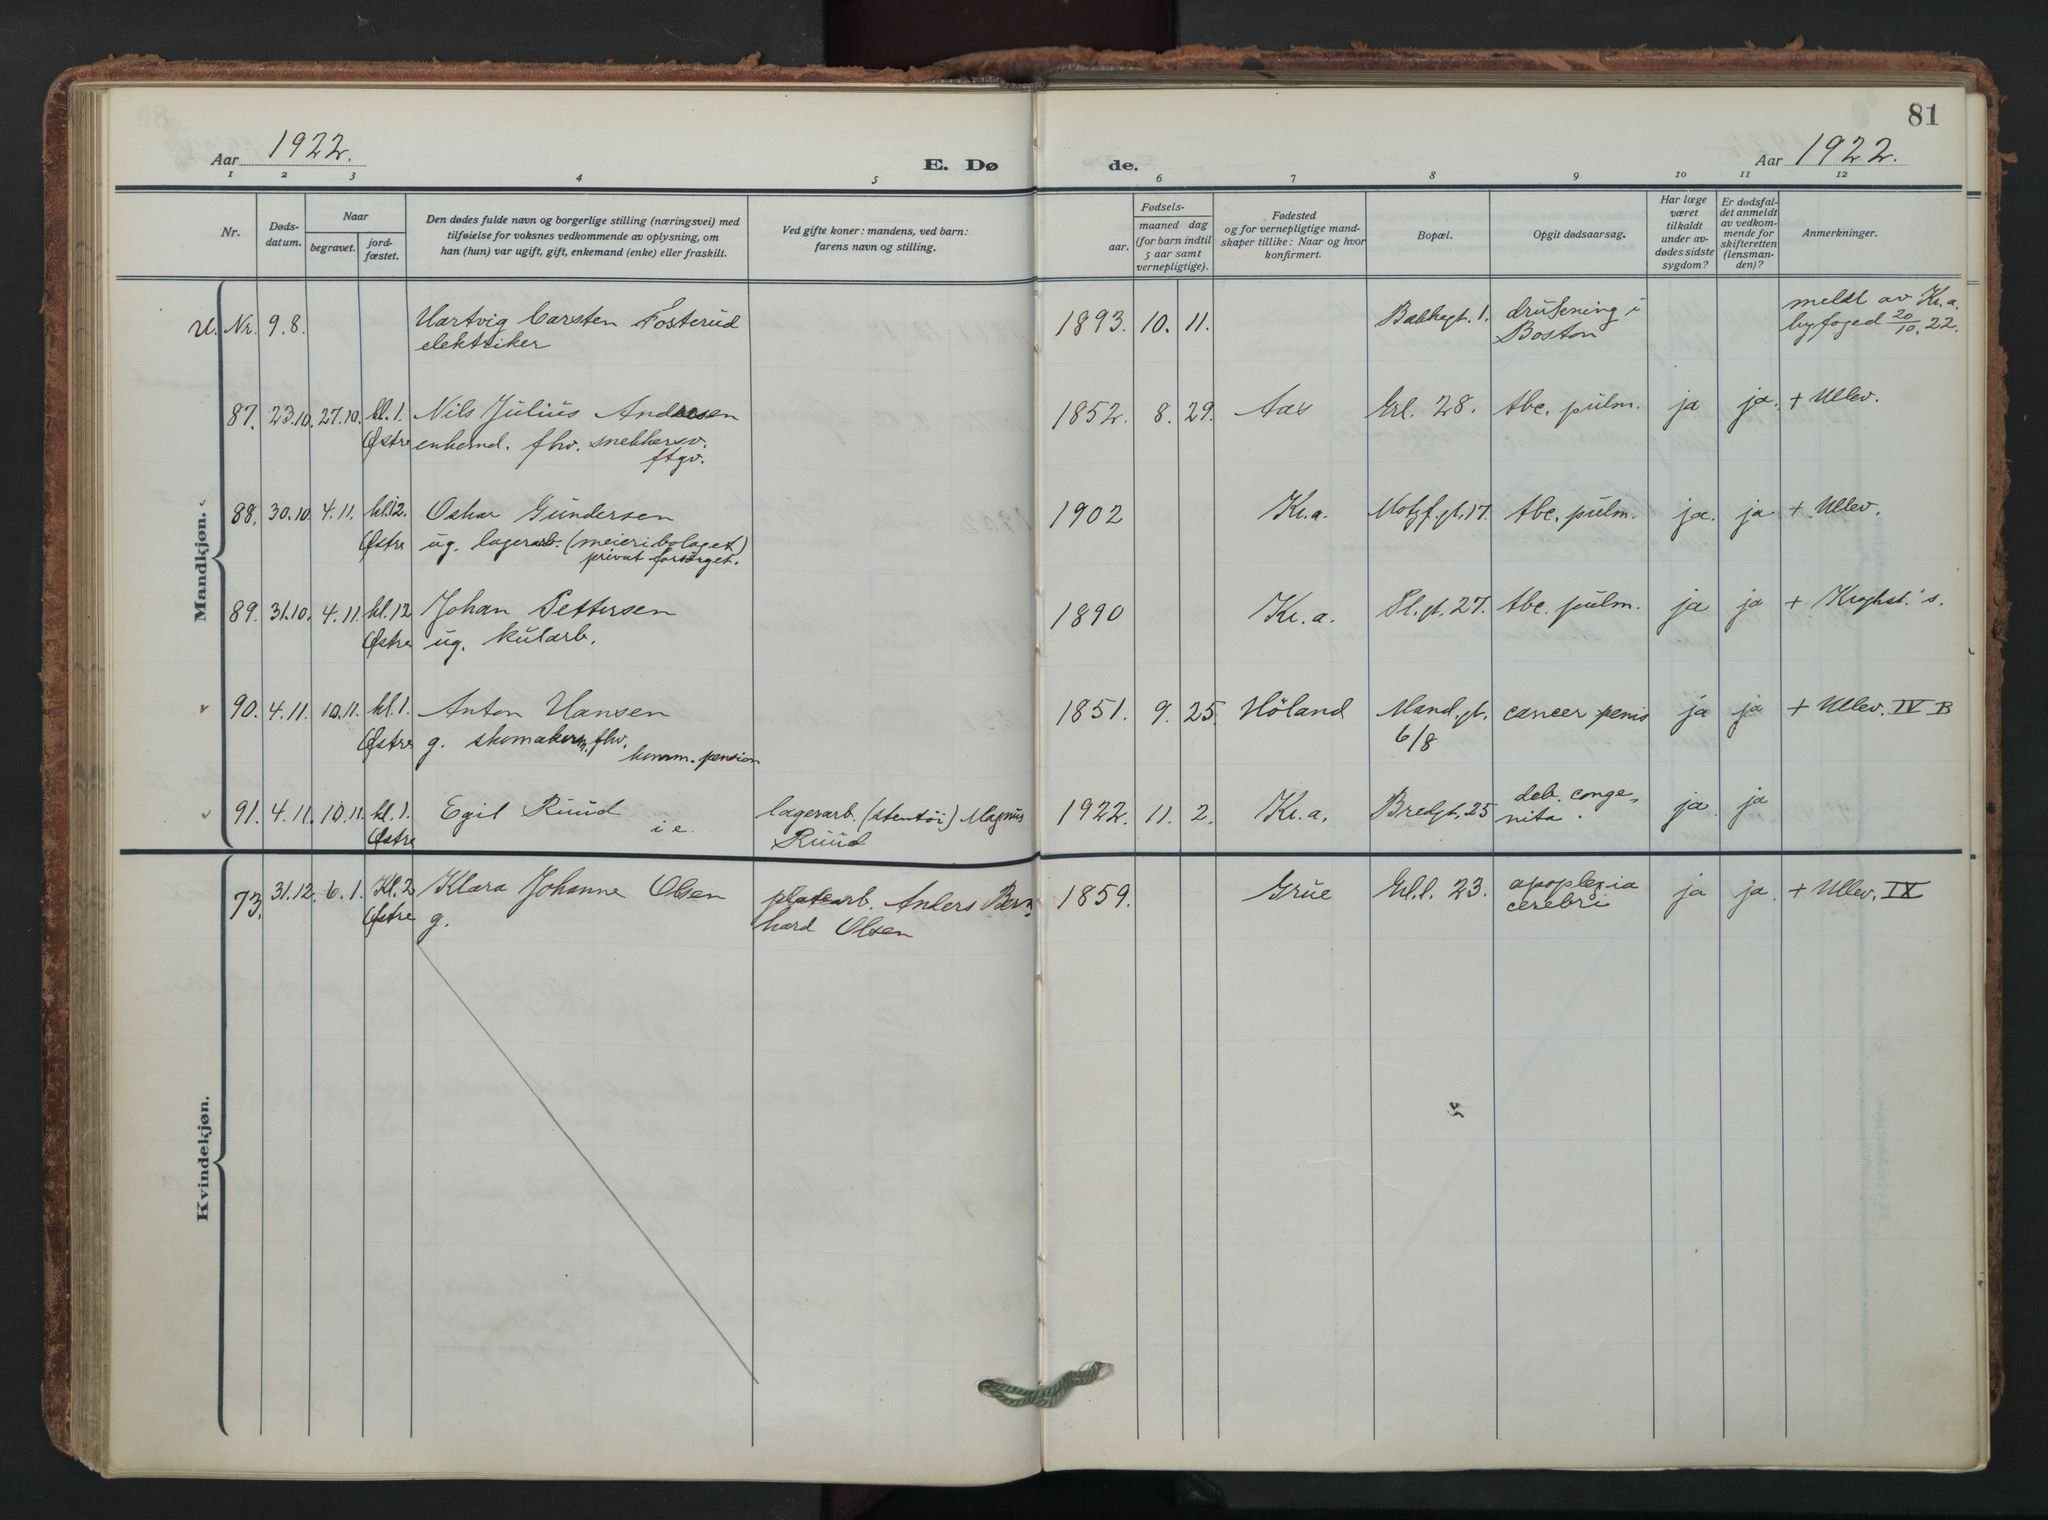 81
Aar 1922.
E. Dø
de.
Aar 1922.
1 2 3 4 5 6 7 8 9 10 11 12
Nr.
Døds-
datum.
Naar
begravet.
jord-
fæstet.
Den dødes fulde navn og borgerlige stilling (næringsvei) med
tilføielse for voksnes vedkommende av oplysning, om
han (hun) var ugift, gift, enkemand (enke) eller fraskilt.
Ved gifte koner: mandens, ved barn:
farens navn og stilling.
Fødsels-
aar.
maaned dag
(for barn indtil
5 aar samt
vernepligtige).
Fødested
og for vernepligtige mand-
skaper tillike: Naar og hvor
konfirmert.
Bopæl.
Opgit dødsaarsag.
Har læge
været
tilkaldt
under av-
dødes sidste
sygdom?
Er dødsfal-
det anmeldt
av vedkom-
mende for
skifteretten
(lensman-
den)?
Anmerkninger.
Mandkjøn.
U. Nr. 9.8. Hartvig Carsten Fosterud 1893. 10. 11. 1. drukning i meldt av Kr.a.
elektriker Boston byfoged 20/10. 22.
87. 23.10. 27.10. kl. 1. Nils Julius Andresen 1852. 8. 29. Aas Grl. 28. tbc. pulm. ja ja. + Ullev.
Østre enkemd. fhv. snekkersv.
ftgv.
88. 30.10. 4.11. kl. 12. Oskar Gundersen 1902 Kr.a. Motzf.gt. 17. tbc. pulm. ja. ja + Ullev.
Østre ug. lagerarb. (meieribolaget)
privat forsørget.
89. 31.10. 4.11. kl. 12 Johan Pettersen 1890 Kr.a. Pl.gt. 27. tbc. pulm. ja ja + Kroghst.'s.
Østre ug. kularb.
90. 4.11. 10.11. kl. 1. Anton Hansen 1851. 9. 25. Höland Mand.gt. cancer penis ja ja + Ullev. IV B
Østre g. skomakerm. fhv. 6/8
komm. pension
91. 4.11. 10.11. kl. 1. Egil Ruud i e. lagerarb. (stentöi) Magnus 1922. 11. 2. Kr.a. Bredgt. 25 deb. conge- ja ja
Østre Ruud nita.
Kvindekjøn.
73. 31.12. 6.1. Kl. 2 Klara Johanne Olsen platearb. Anders Bern- 1859. Grue Grl.l. 23. apoplexia ja ja. + Ullev. IX
Østre g. hard Olsen cerebri